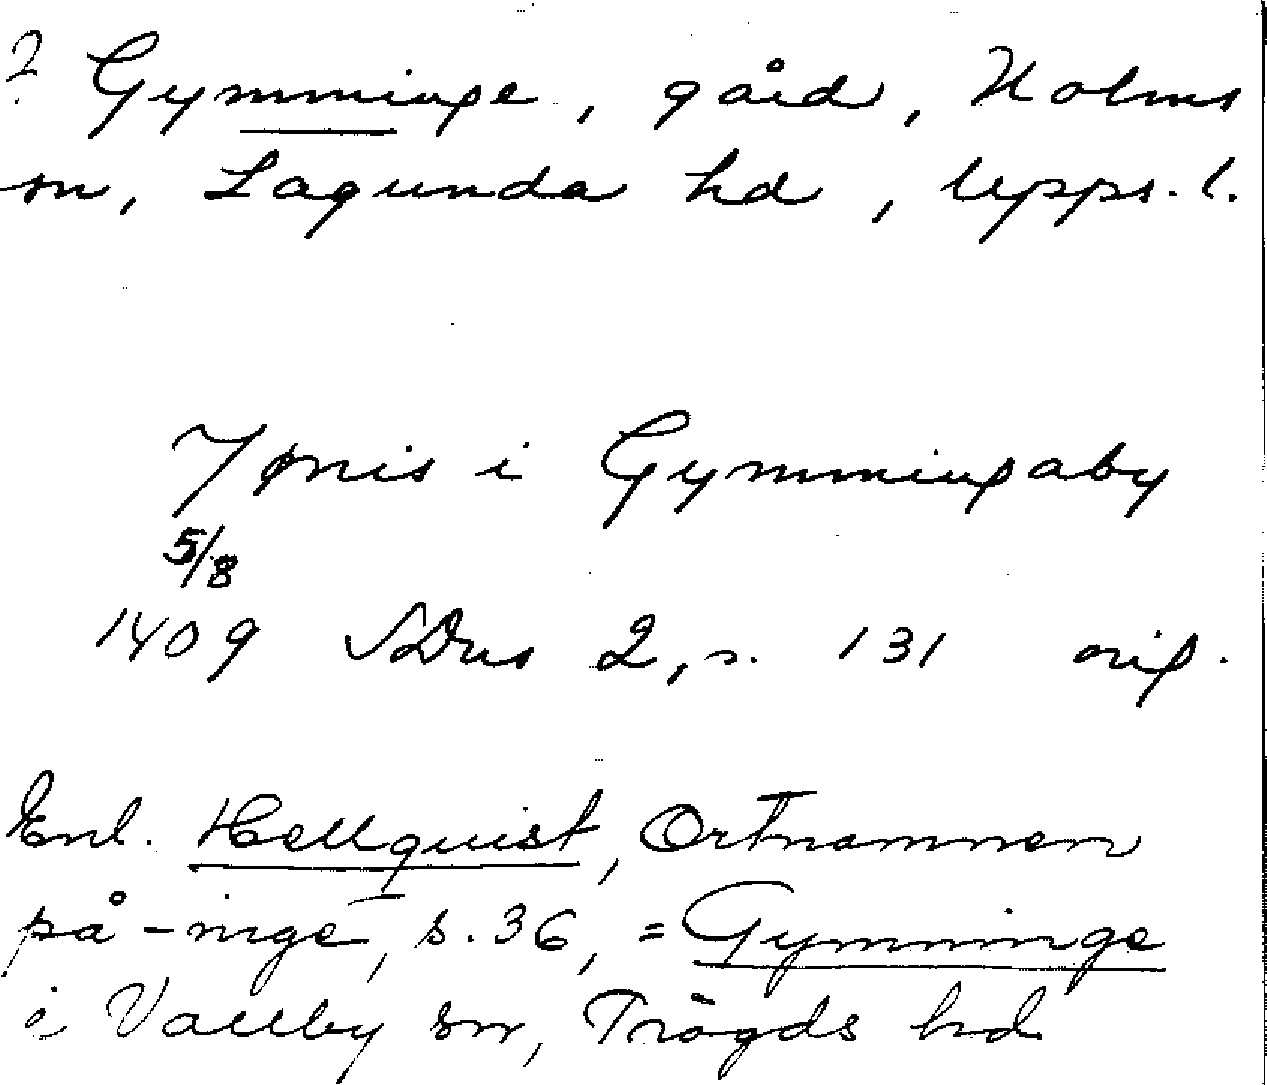 ? Gymminge, gård, Holms
sn, Lagunda hd, Upps. l.
Jønis i Gymmingaby
5/8
1409 SDns 2, s. 131 orig.
Enl. Hellquist, Ortnamnen
på -inge, s. 36, = Gymminge
i Vallby sn, Trögds hd